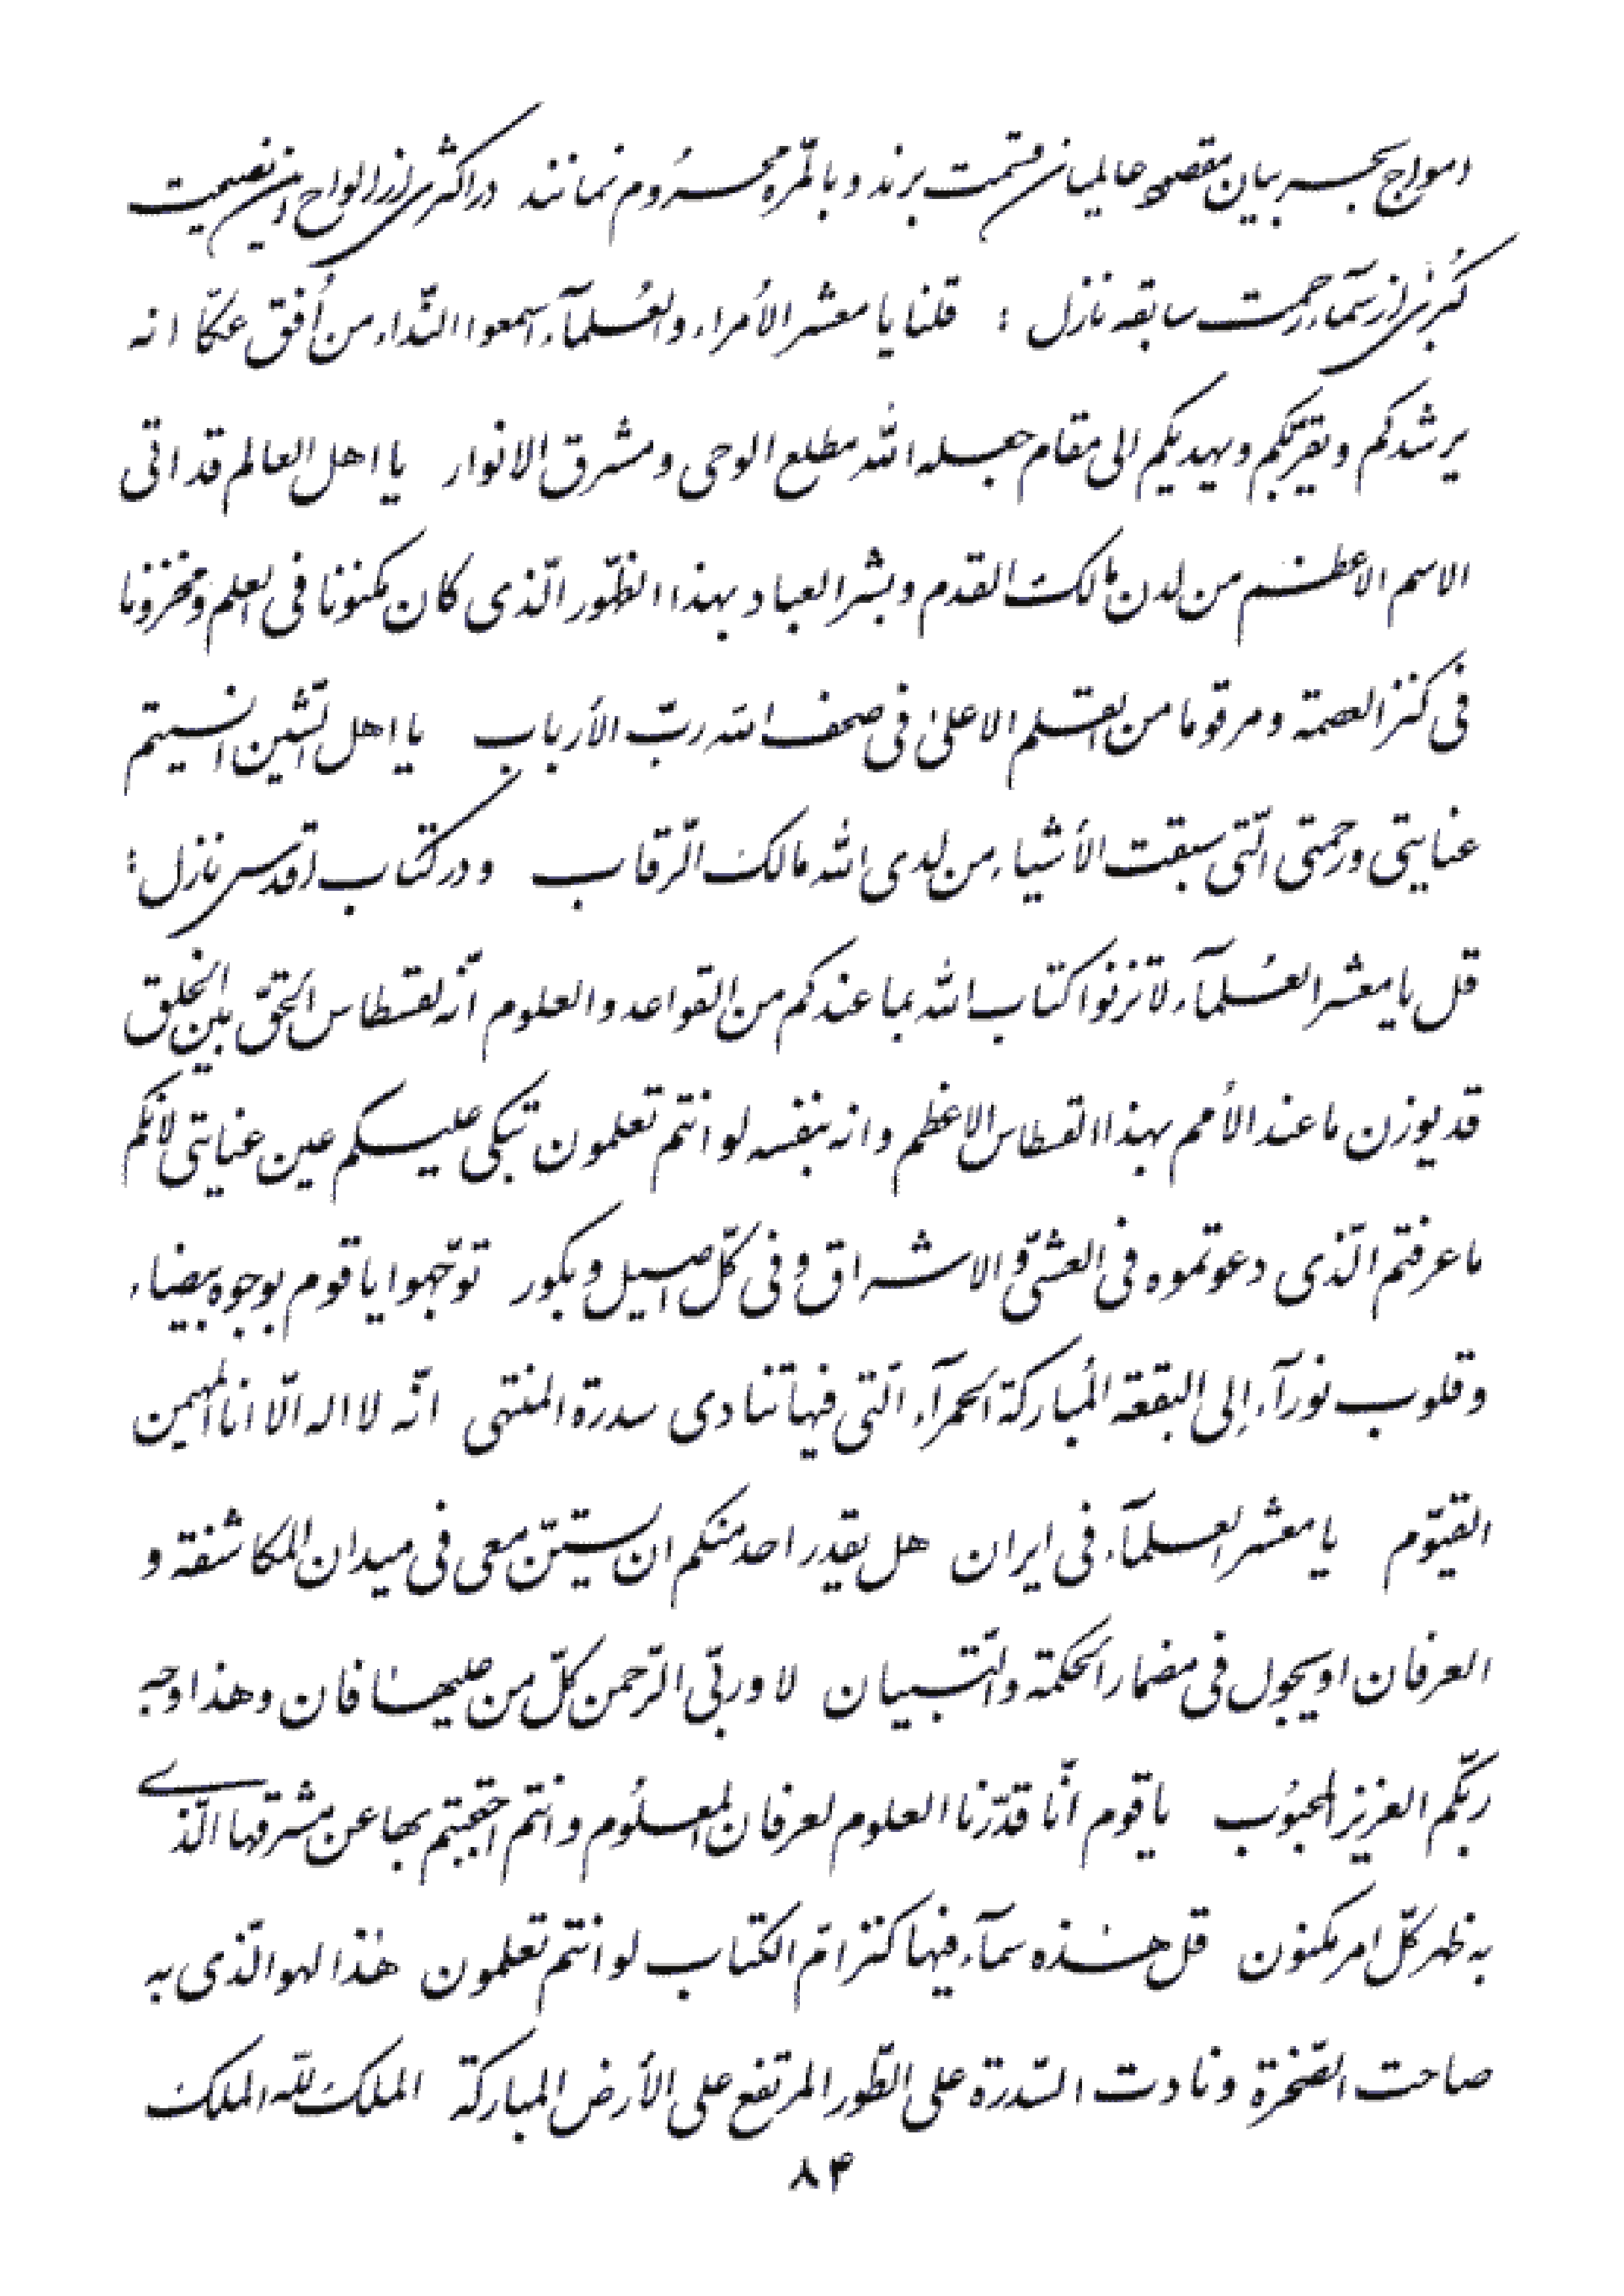 امواج بحر بیان مقصود عالمیان قسمت برند و بالمرّه محروم نمانند در اکثری از الواح این نصیحت
کُبریٰ از سمآء رحمت سابقه نازل : قلنا یا معشر الأمراء و العُلمآء اسمعوا النّداء من اُفق عکّا انه
یرشدکم و یقرّبکم و یهدیکم الی مقام جعله الله مطلع الوحی و مشرق الانوار یا اهل العالم قد اتی
الاسم الاعظم من لدن مالک القدم و بشر العباد بهذا الظّهور الّذی کان مکنونا فی العلم و مخزونا
فی کنز العصمة و مرقوما من القلم الاعلیٰ فی صحف الله ربّ الأرباب یا اهل الشّین انسیتم
عنایتی و رحمتی الّتی سبقت الأشیاء من لدی الله مالک الرّقاب و در کتاب اقدس نازل :
قل یا معشر العُلمآء لا تزنوا کتاب الله بما عندکم من القواعد و العلوم انّه لقسطاس الحقّ بین الخلق
قد یوزن ما عند الأمم بهذا القسطاس الاعظم و انه بنفسه لو انتم تعلمون تبکی علیکم عین عنایتی لانّکم
ما عرفتم الّذی دعوتموه فی العشیّ و الاشراق و فی کلّ اصیل و بکور توجّهوا یا قوم بوجوه بیضاء
و قلوب نورآء إلی البقعة المُبارکة الحمرآء الّتی فیها تنادی سدرة المنتهی انّه لا اله الّا انا المهیمن
القیّوم یا معشر العلمآء فی ایران هل یقدر احد منکم ان یستنّ معی فی میدان المکاشفة و
العرفان او یجول فی مضمار الحکمة و التّبیان لا و ربّی الرّحمن کلّ من علیها فان و هذا وجه
ربّکم العزیز المحبُوب یا قوم انّا قدّرنا العلوم لعرفان المعلُوم و انتم احتجبتم بها عن مشرقها الّذی
به ظهر کلّ امر مکنون قل هٰذه سمآء فیها کنز امّ الکتاب لو انتم تعلمون هٰذا لهو الّذی به
صاحت الصّخرة و نادت السّدرة علی الطّور المرتفع علی الأرض المبارکة الملک لله الملک
۸۴